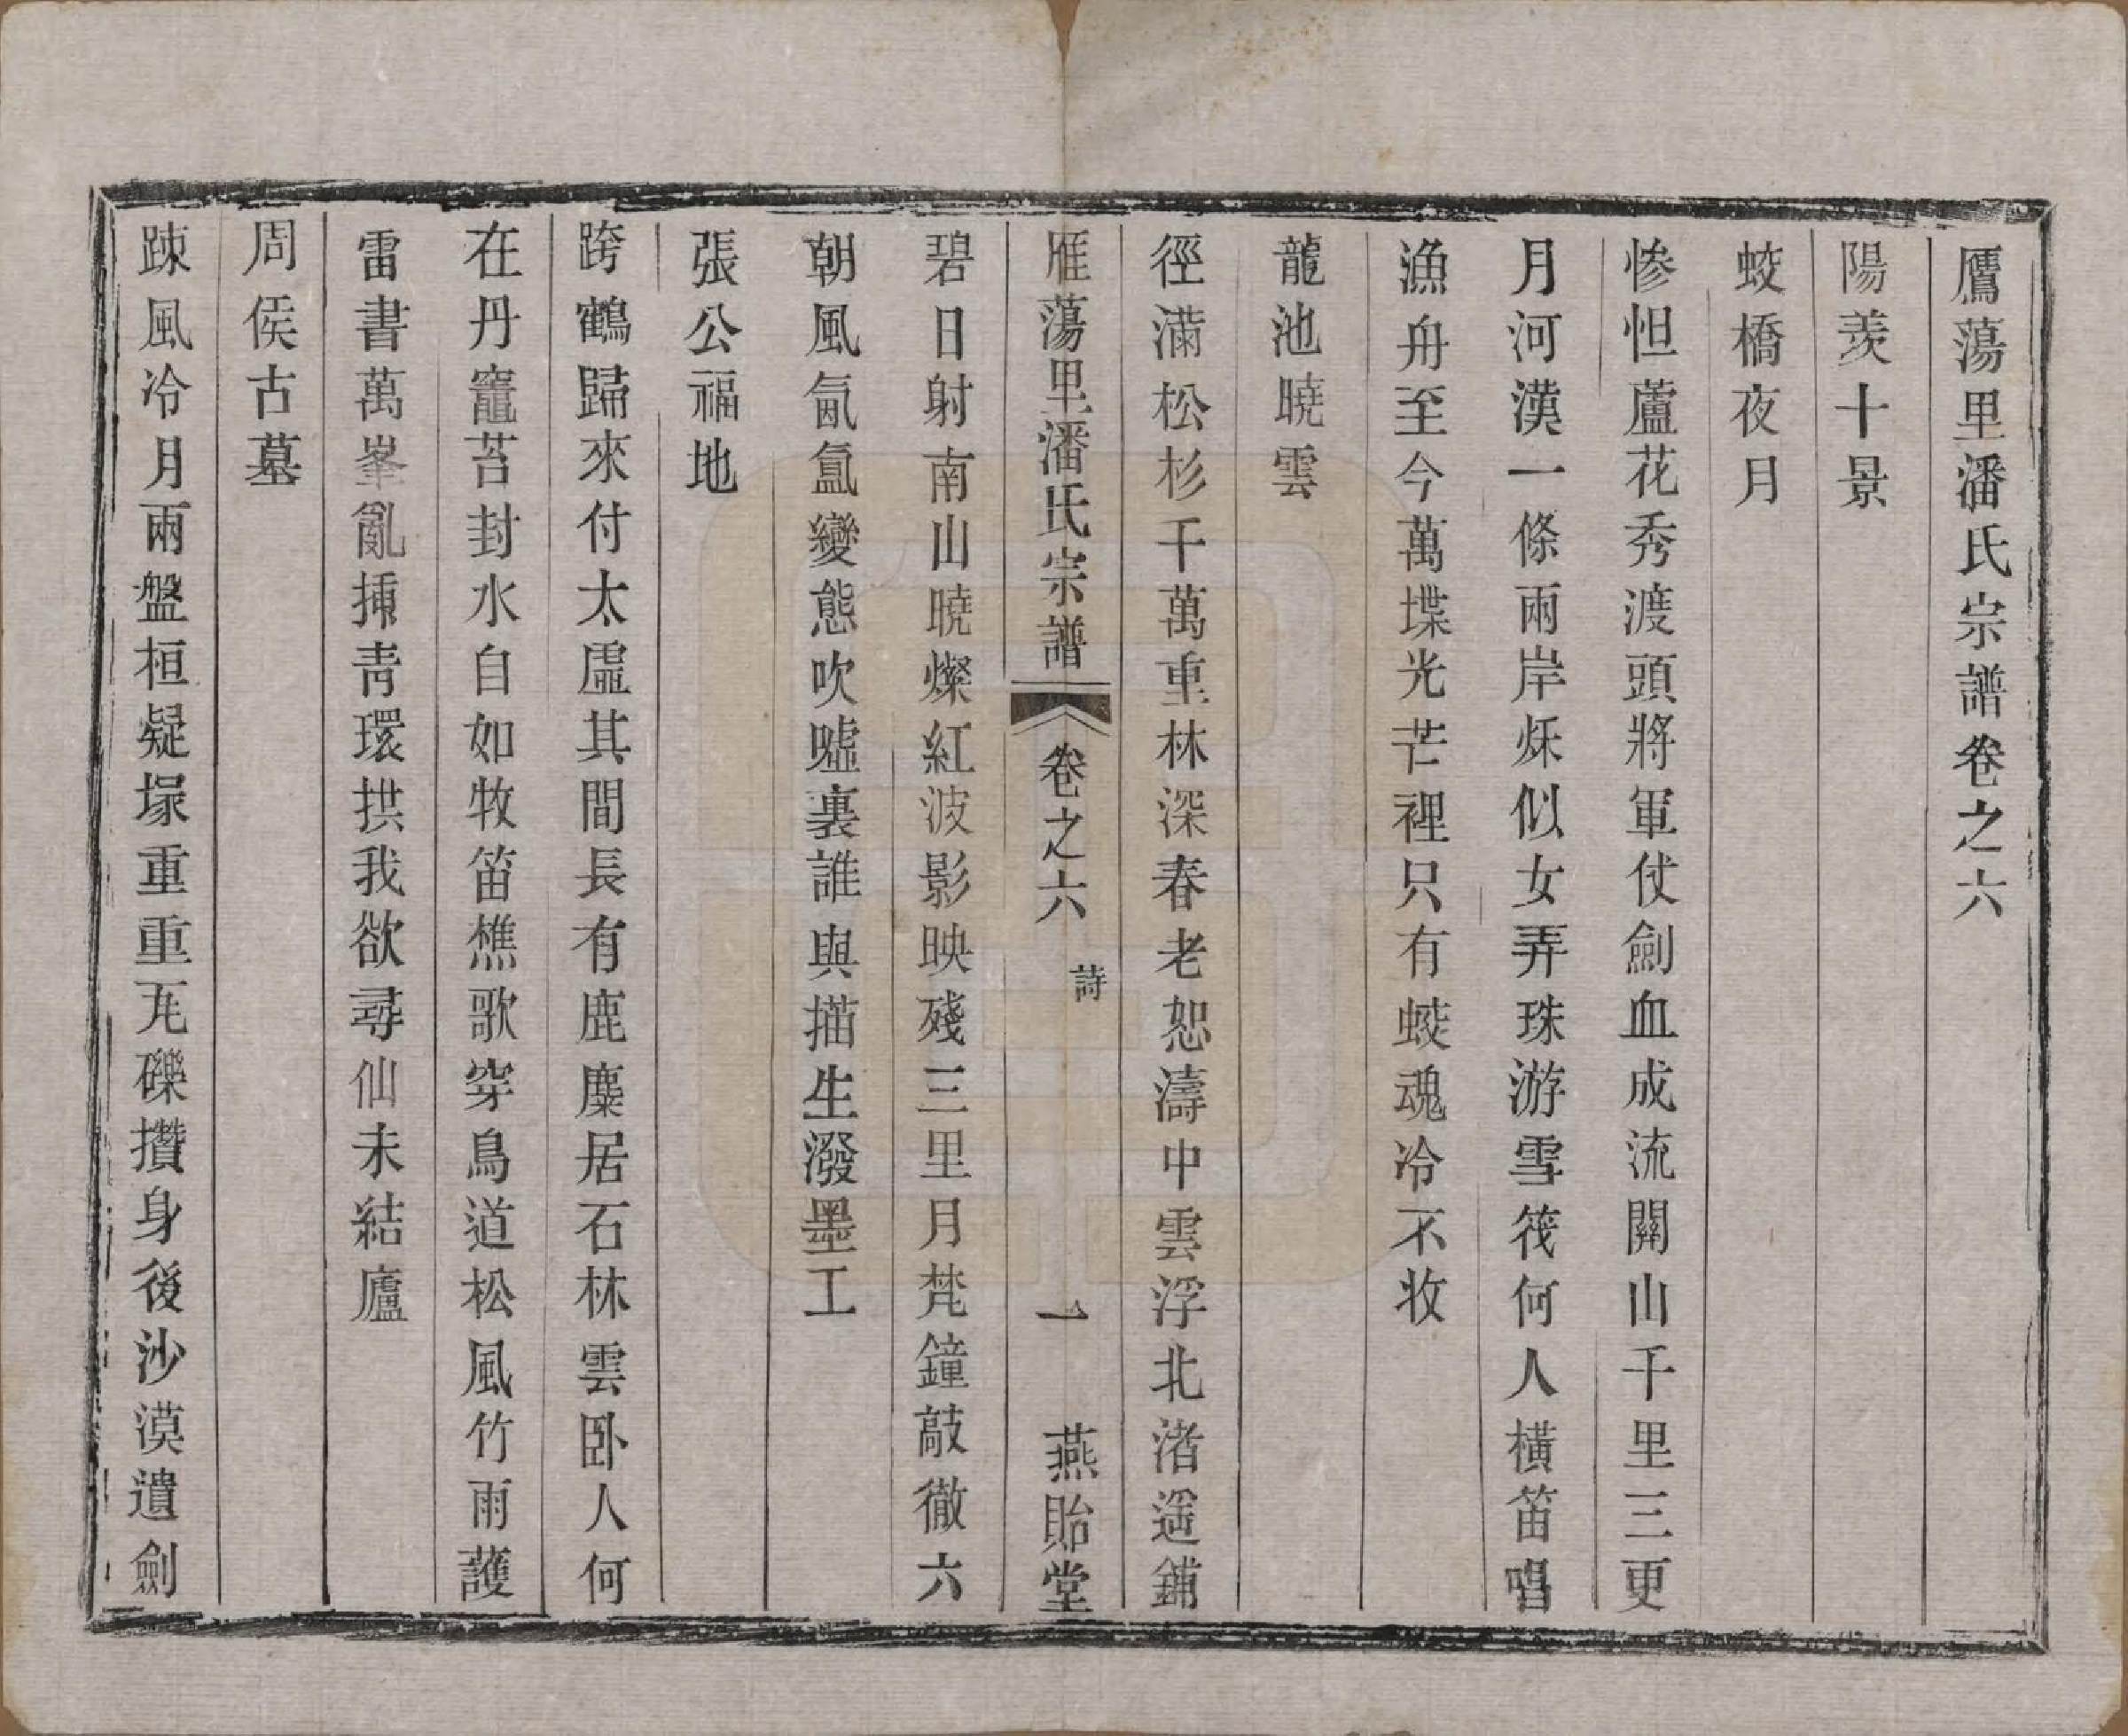 鴈蕩里潘氏宗譜卷之六
陽羨十景
蛟橋夜月
慘怛蘆花秀渡頭將軍仗劍血成流關山千里三更
月河漢一條兩岸烁似女弄珠游雪筏何人橫笛唱
漁舟至今萬堞光芒裡只有蛟魂冷不收
龍池曉雲
徑滿松杉千萬重林深春老恕濤中雲浮北渚遥鋪
雁蕩里潘氏宗譜 卷之六 詩 一 燕貽堂
碧日射南山曉燦紅波影映殘三里月梵鐘敲徹六
朝風氤氳變態吹噓裏誰與描生潑墨工
張公福地
跨鶴歸來付太虛其間長有鹿麋居石林雲卧人何
在丹竈苔封水自如牧笛樵歌穿鳥道松風竹雨護
雷書萬峯亂揷靑環拱我欲尋仙未結廬
周侯古墓
踈風冷月兩盤桓疑塚重重瓦礫攢身後沙漠遺劍